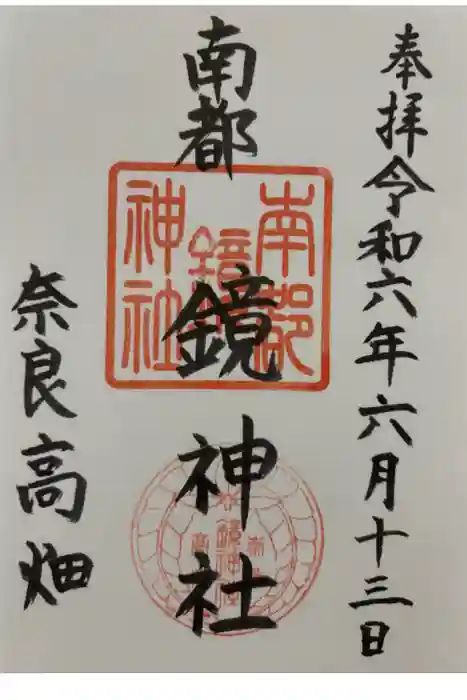 奉拝令和六年六月十三日
南都
鏡神社
奈良高畑
南都
鏡
神社